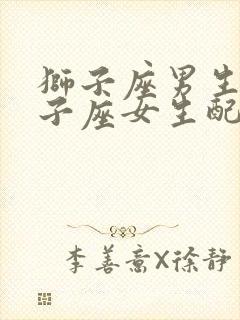 獅子座男生
子座女生配
李善喬X徐静